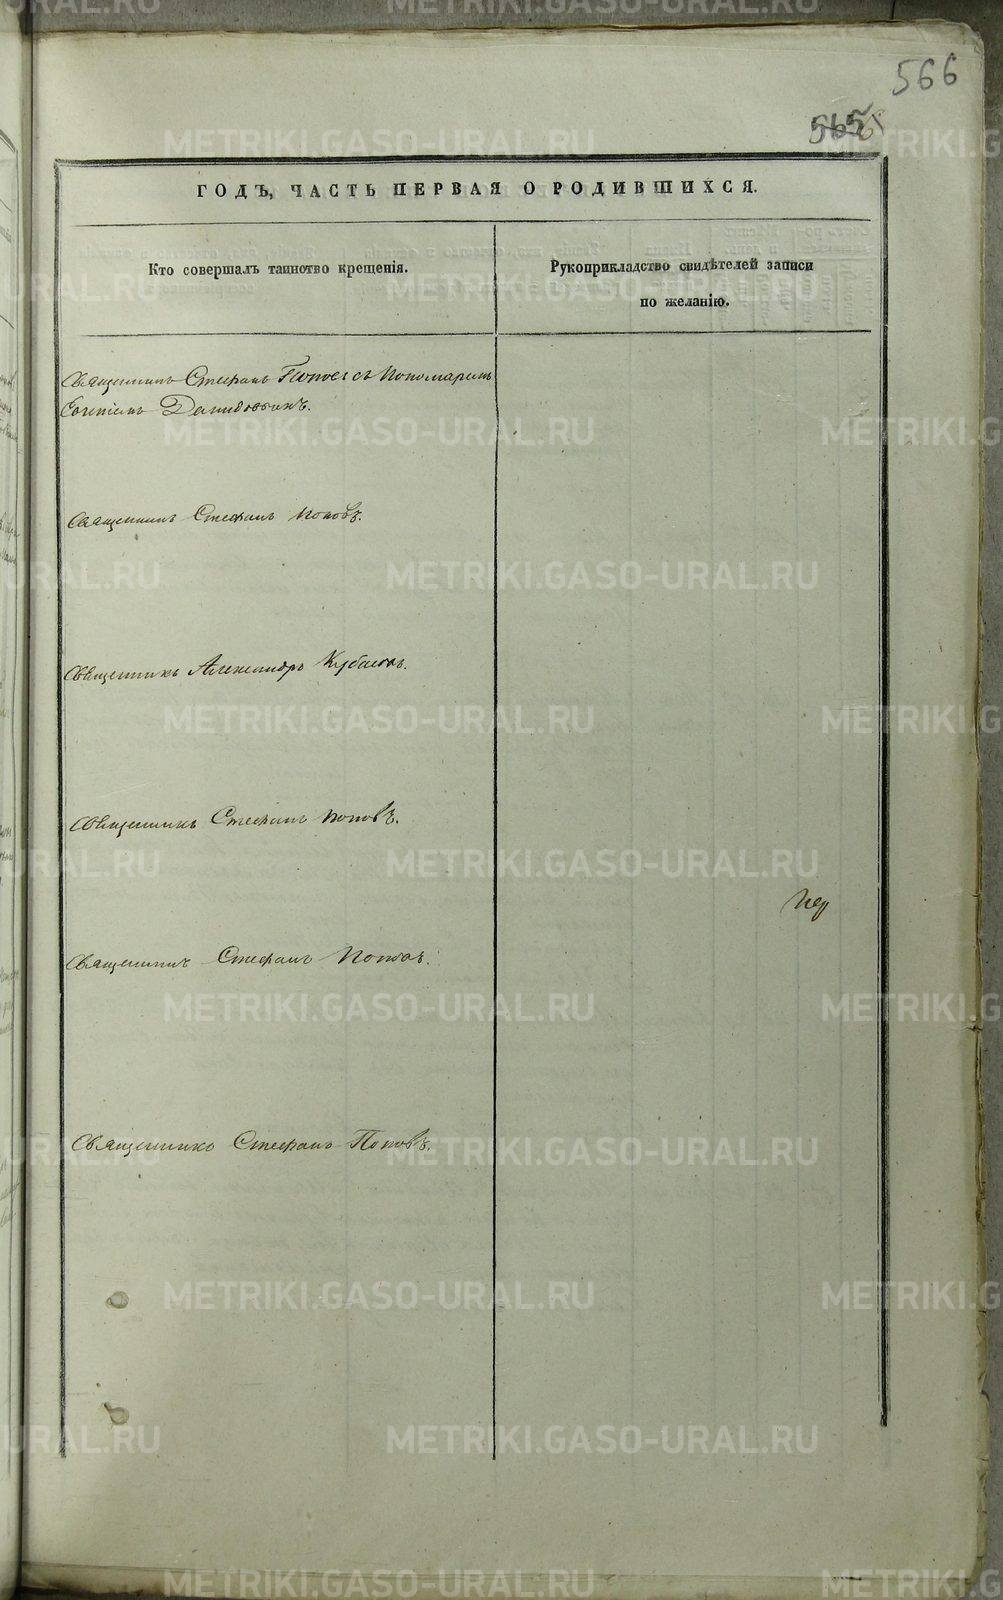 566
565
ГОДЪ, ЧАСТЬ ПЕРВАЯ О РОДИВШИХСЯ.
Кто совершалъ таинство крещенія.
Рукоприкладство свидѣтелей записи
по желанію.
Священникъ Стефанъ Поповъ съ Пономаремъ
Давидовымъ.
Священникъ Стефанъ Поповъ.
Священникъ Александръ
Священникъ Стефанъ Поповъ.
Священникъ Стефанъ Поповъ.
Священникъ Стефанъ Поповъ.
METRIKI.GASO-URAL.RU